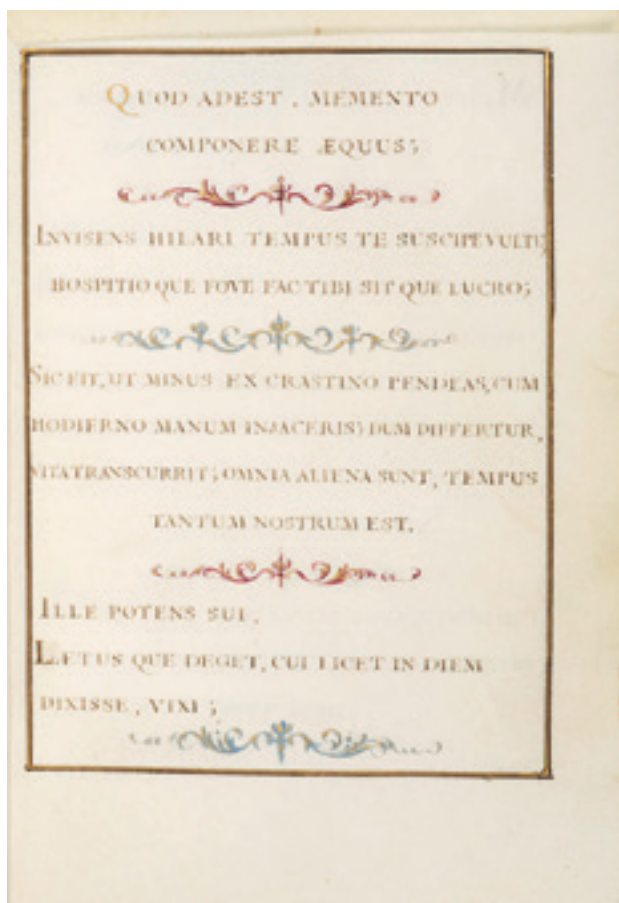 QUOD ADEST, MEMENTO
COMPONERE ÆQUUS;
INVISENS HILARI TEMPUS TE SUSCIPE VULTU,
HOSPITIO QUE FOVE FAC TIBI SIT QUE LUCRO;
SIC FIT, UT MINUS EX CRASTINO PENDEAS, CUM
HODIERNO MANUM INJACERIS; DUM DIFFERTUR,
VITA TRANSCURRIT; OMNIA ALIENA SUNT, TEMPUS
TANTUM NOSTRUM EST.
ILLE POTENS SUI,
LÆTUS QUE DEGET, CUI LICET IN DIEM
DIXISSE, VIXI;